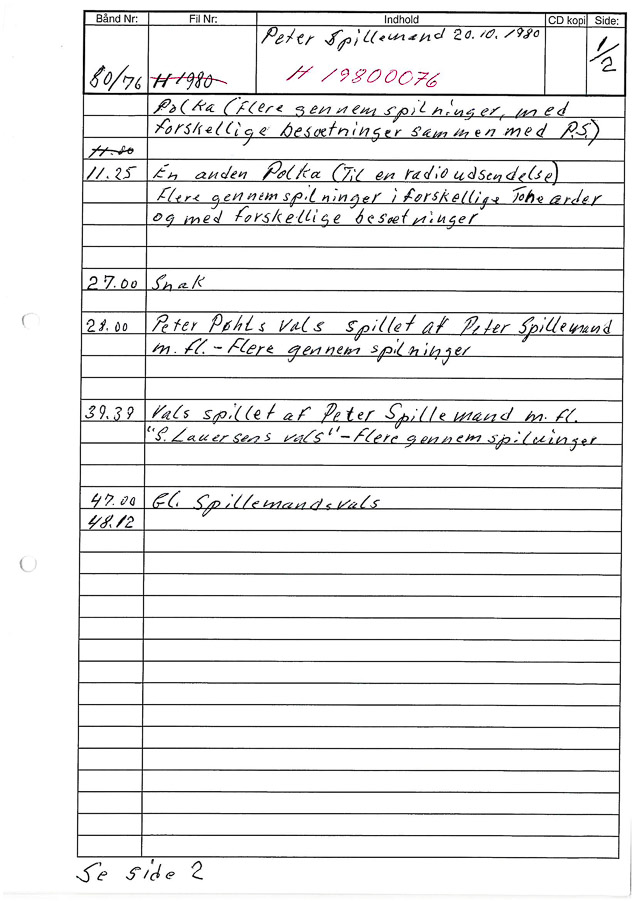 Bånd Nr: Fil Nr: Indhold CD kopi Side:
Peter Spillemand 20.10.1980
80/76 H 1980 H 19800076 1/2
Polka (flere gennemspilninger, med
forskellige besætninger sammen med P.S.)
11.80
11.25 En anden Polka (Til en radioudsendelse)
Flere gennemspilninger i forskellige Tonearder
og med forskellige besætninger
27.00 Snak
28.00 Peter Pøhls vals spillet af Peter Spillemand
m. fl. - Flere gennemspilninger
39.39 Vals spillet af Peter Spillemand m. fl.
"S. Lauersens vals" - flere gennemspilninger
47.00 Gl. Spillemandsvals
48.12
Se side 2